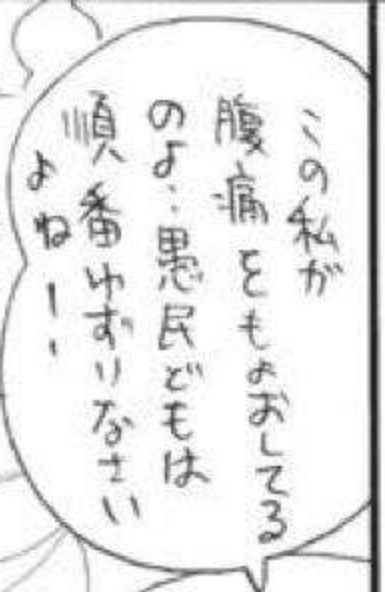 この私が
腹痛をもよおしてる
のよ…愚民どもは
順番ゆずりなさい
よねー！